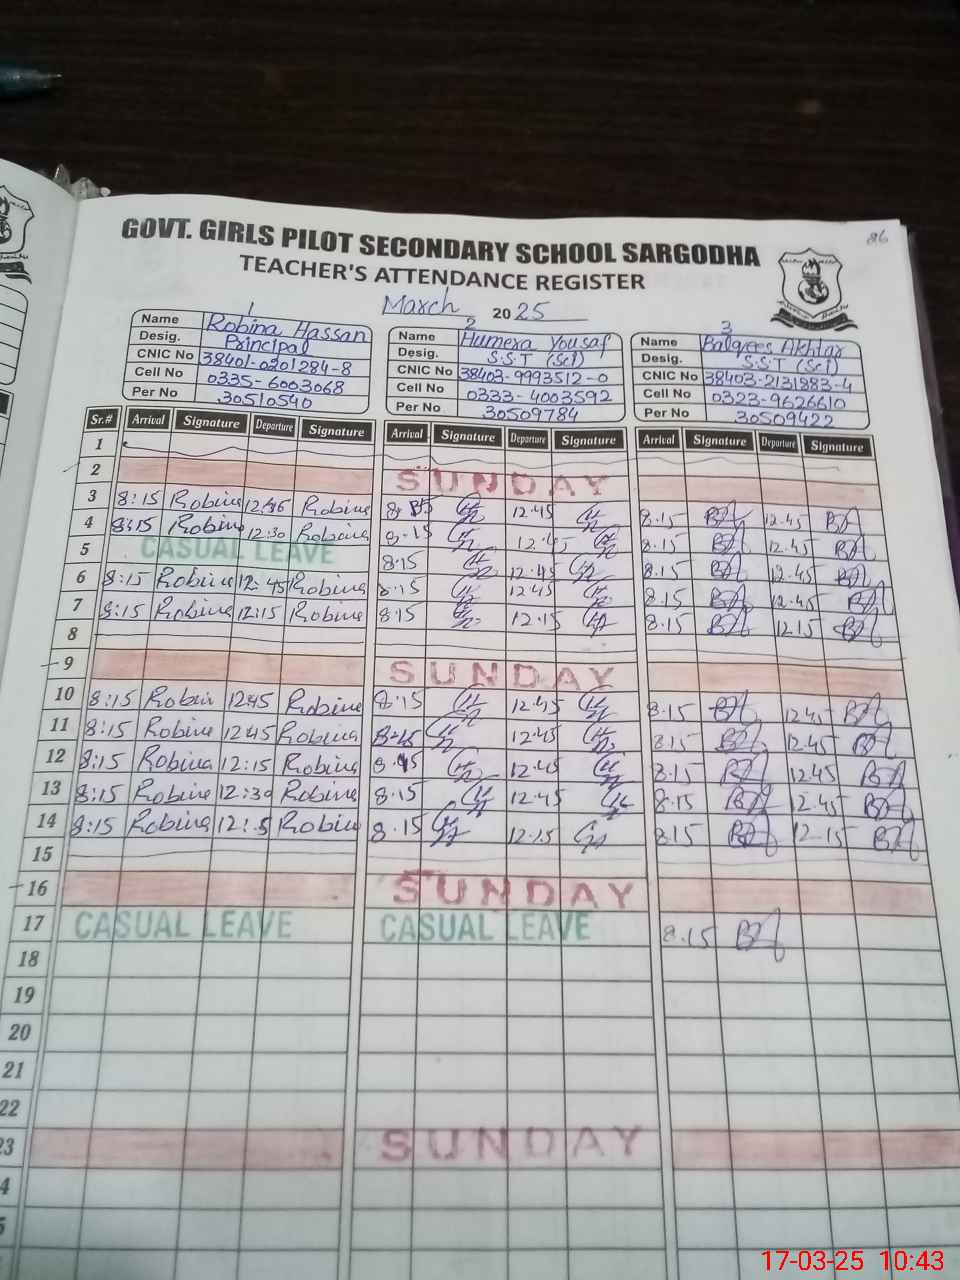 86
GOVT. GIRLS PILOT SECONDARY SCHOOL SARGODHA
TEACHER'S ATTENDANCE REGISTER
March 2025
1 2 3
Name Robina Hassan Name Humera Yousaf Name Balqees Akhtar
Desig. Principal Desig. S.S.T (Sci) Desig. S.S.T (Sci)
CNIC No 38401-0201284-8 CNIC No 38403-9993512-0 CNIC No 38403-2131883-4
Cell No 0335-6003068 Cell No 0333-4003592 Cell No 0323-9626610
Per No 30510540 Per No 30509784 Per No 30509422
Sr.# Arrival Signature Departure Signature Arrival Signature Departure Signature Arrival Signature Departure Signature
1
2 SUNDAY
3 8:15 Robina Robina 12.45 8.15 12.45
4 8:15 Robina 12:30 Robina 8.15 8.15 12.45
5 CASUAL LEAVE 8.15 12.45 8.15 12.45
6 8:15 Robina 12:45 Robina 8.15 12.45 8.15 12.45
7 8:15 Robina 12:15 Robina 8.15 12.15 8.15 12.15
8
9 SUNDAY
10 8:15 Robin 12:45 Robina 8.15 12.45 8.15 12.45
11 8:15 Robina 12:45 Robina 12.45 8.15 12.45
12 8:15 Robina 12:15 Robina 12.45 8.15 12.45
13 8:15 Robina 12:30 Robina 8.15 12.45 8.15 12.45
14 8:15 Robina Robina 8.15 12.15 8.15 12.15
15
16 SUNDAY
17 CASUAL LEAVE CASUAL LEAVE 8.15
18
19
20
21
22
23 SUNDAY
4
5
17-03-25 10:43